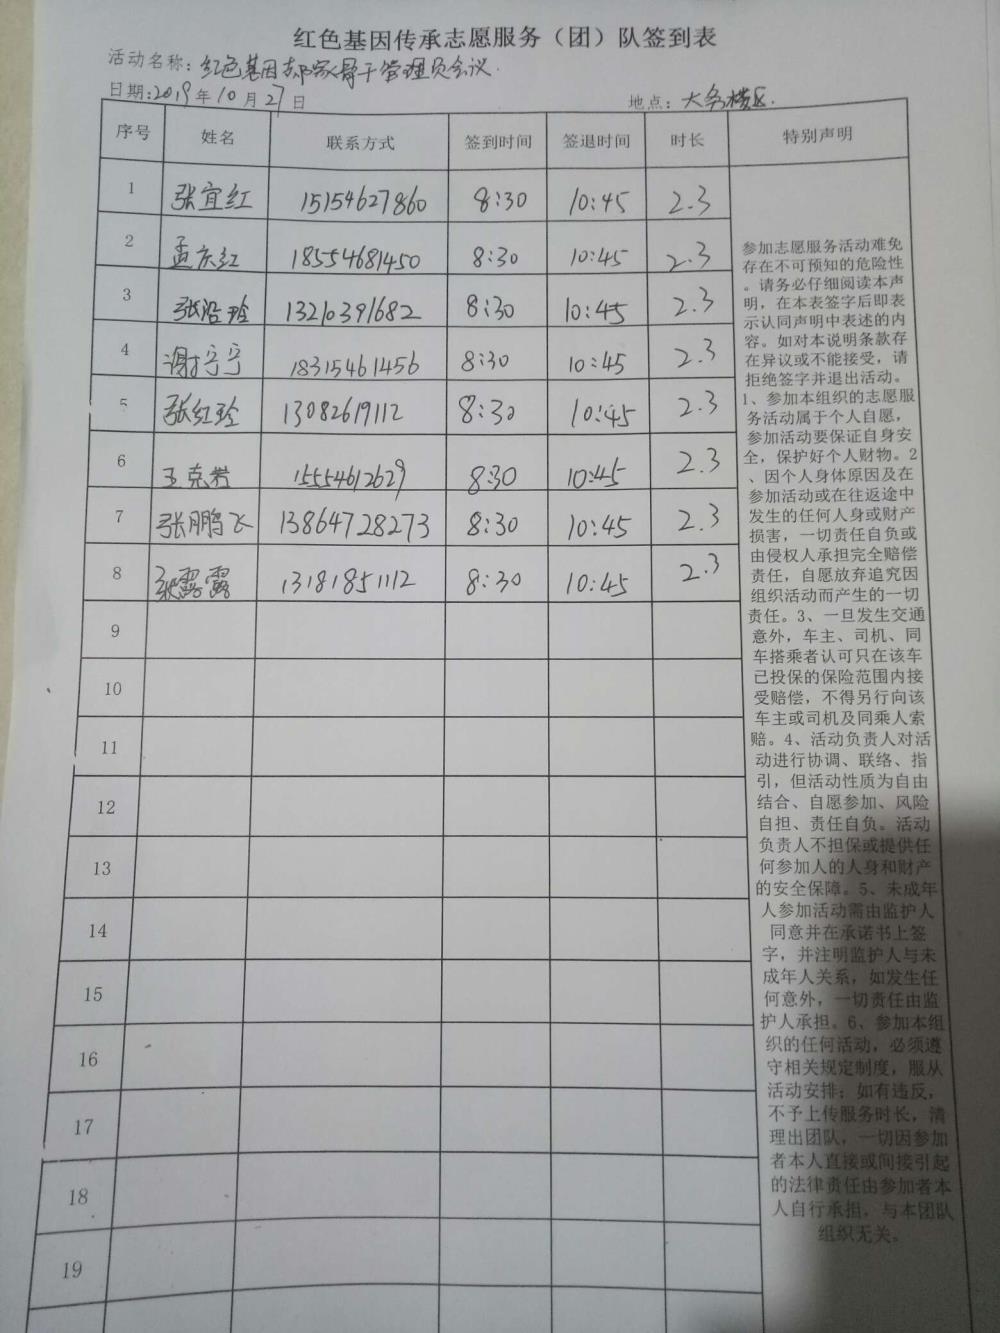 红色基因传承志愿服务（团）队签到表
活动名称：红色基因 骨干管理员会议.
日期：2019年10月27日 地点：大 楼区.
序号 姓名 联系方式 签到时间 签退时间 时长 特别声明
1 张宜红 15154627860 8:30 10:45 2.3
2 孟庆红 18554681450 8:30 10:45 2.3
3 张 玲 13210391682 8:30 10:45 2.3
4 谢宁宁 18315461456 8:30 10:45 2.3
5 张红玲 13082619112 8:30 10:45 2.3
6 王克岩 15554612629 8:30 10:45 2.3
7 张鹏飞 13864728273 8:30 10:45 2.3
8 张露露 13181851112 8:30 10:45 2.3
9
10
11
12
13
14
15
16
17
18
19
参加志愿服务活动难免
存在不可预知的危险性
。请务必仔细阅读本声
明，在本表签字后即表
示认同声明中表述的内
容。如对本说明条款存
在异议或不能接受，请
拒绝签字并退出活动。
1、参加本组织的志愿服
务活动属于个人自愿，
参加活动要保证自身安
全，保护好个人财物。2
、因个人身体原因及在
参加活动或在往返途中
发生的任何人身或财产
损害，一切责任自负或
由侵权人承担完全赔偿
责任，自愿放弃追究因
组织活动而产生的一切
责任。3、一旦发生交通
意外，车主、司机、同
车搭乘者认可只在该车
已投保的保险范围内接
受赔偿，不得另行向该
车主或司机及同乘人索
赔。4、活动负责人对活
动进行协调、联络、指
引，但活动性质为自由
结合、自愿参加、风险
自担、责任自负。活动
负责人不担保或提供任
何参加人的人身和财产
的安全保障。5、未成年
人参加活动需由监护人
同意并在承诺书上签
字，并注明监护人与未
成年人关系，如发生任
何意外，一切责任由监
护人承担。6、参加本组
织的任何活动，必须遵
守相关规定制度，服从
活动安排；如有违反，
不予上传服务时长，清
理出团队，一切因参加
者本人直接或间接引起
的法律责任由参加者本
人自行承担，与本团队
组织无关。